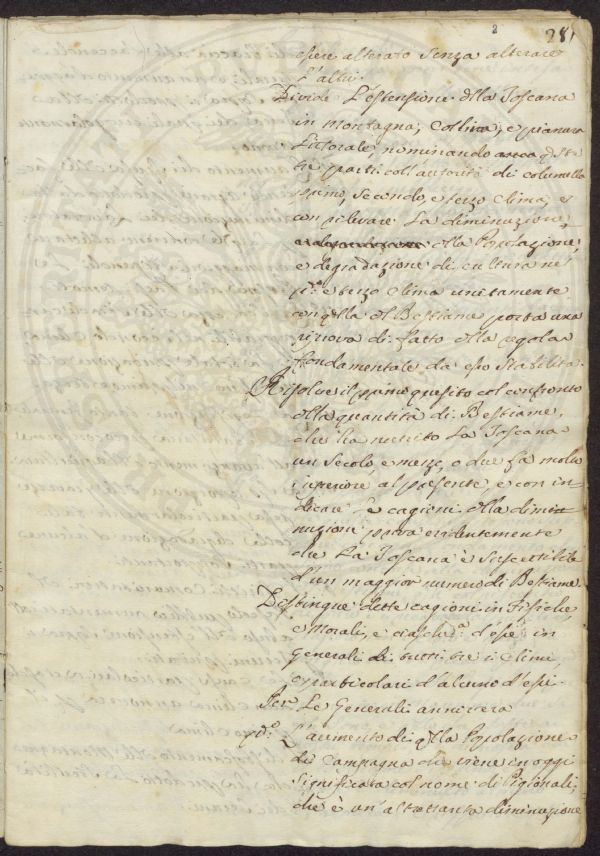 2
281
essere alterato senza alterare
l'altri.
Divide L'estensione della Toscana
in montagna, Collina, e pianura
Littorale, nominando
tre parti coll'autorità di columella
primo, secondo, e terzo Clima, e
con rilevare La diminuzione,
della Popolazione,
e degradazione di cultura ne
p.º e terzo Clima unitamente
con qlla del Bestiame porta una
riprova di fatto della regola
fondamentale da esso stabilita.
Risolve il primo quesito col confronto
della quantità di Bestiame,
che ha nutrito La Toscana
un secolo, e mezzo, o due fa molto
superiore al presente, e con in=
dicare Le cagioni della dimi=
nuzione prova evidentemente
che La Toscana è suscettibile
d'un maggior numero di Bestiame.
Distingue dette cagioni in Fisiche,
e Morali, e ciasched.ª d'esse in
generali di tutti tre i Climi,
e particolari d'alcuno d'essi.
Per Le Generali annovera
L'aumento di qlla Popolazione
di Campagna che viene in oggi
significata col nome di Pigionali,
che è un'altrettanta diminuzione